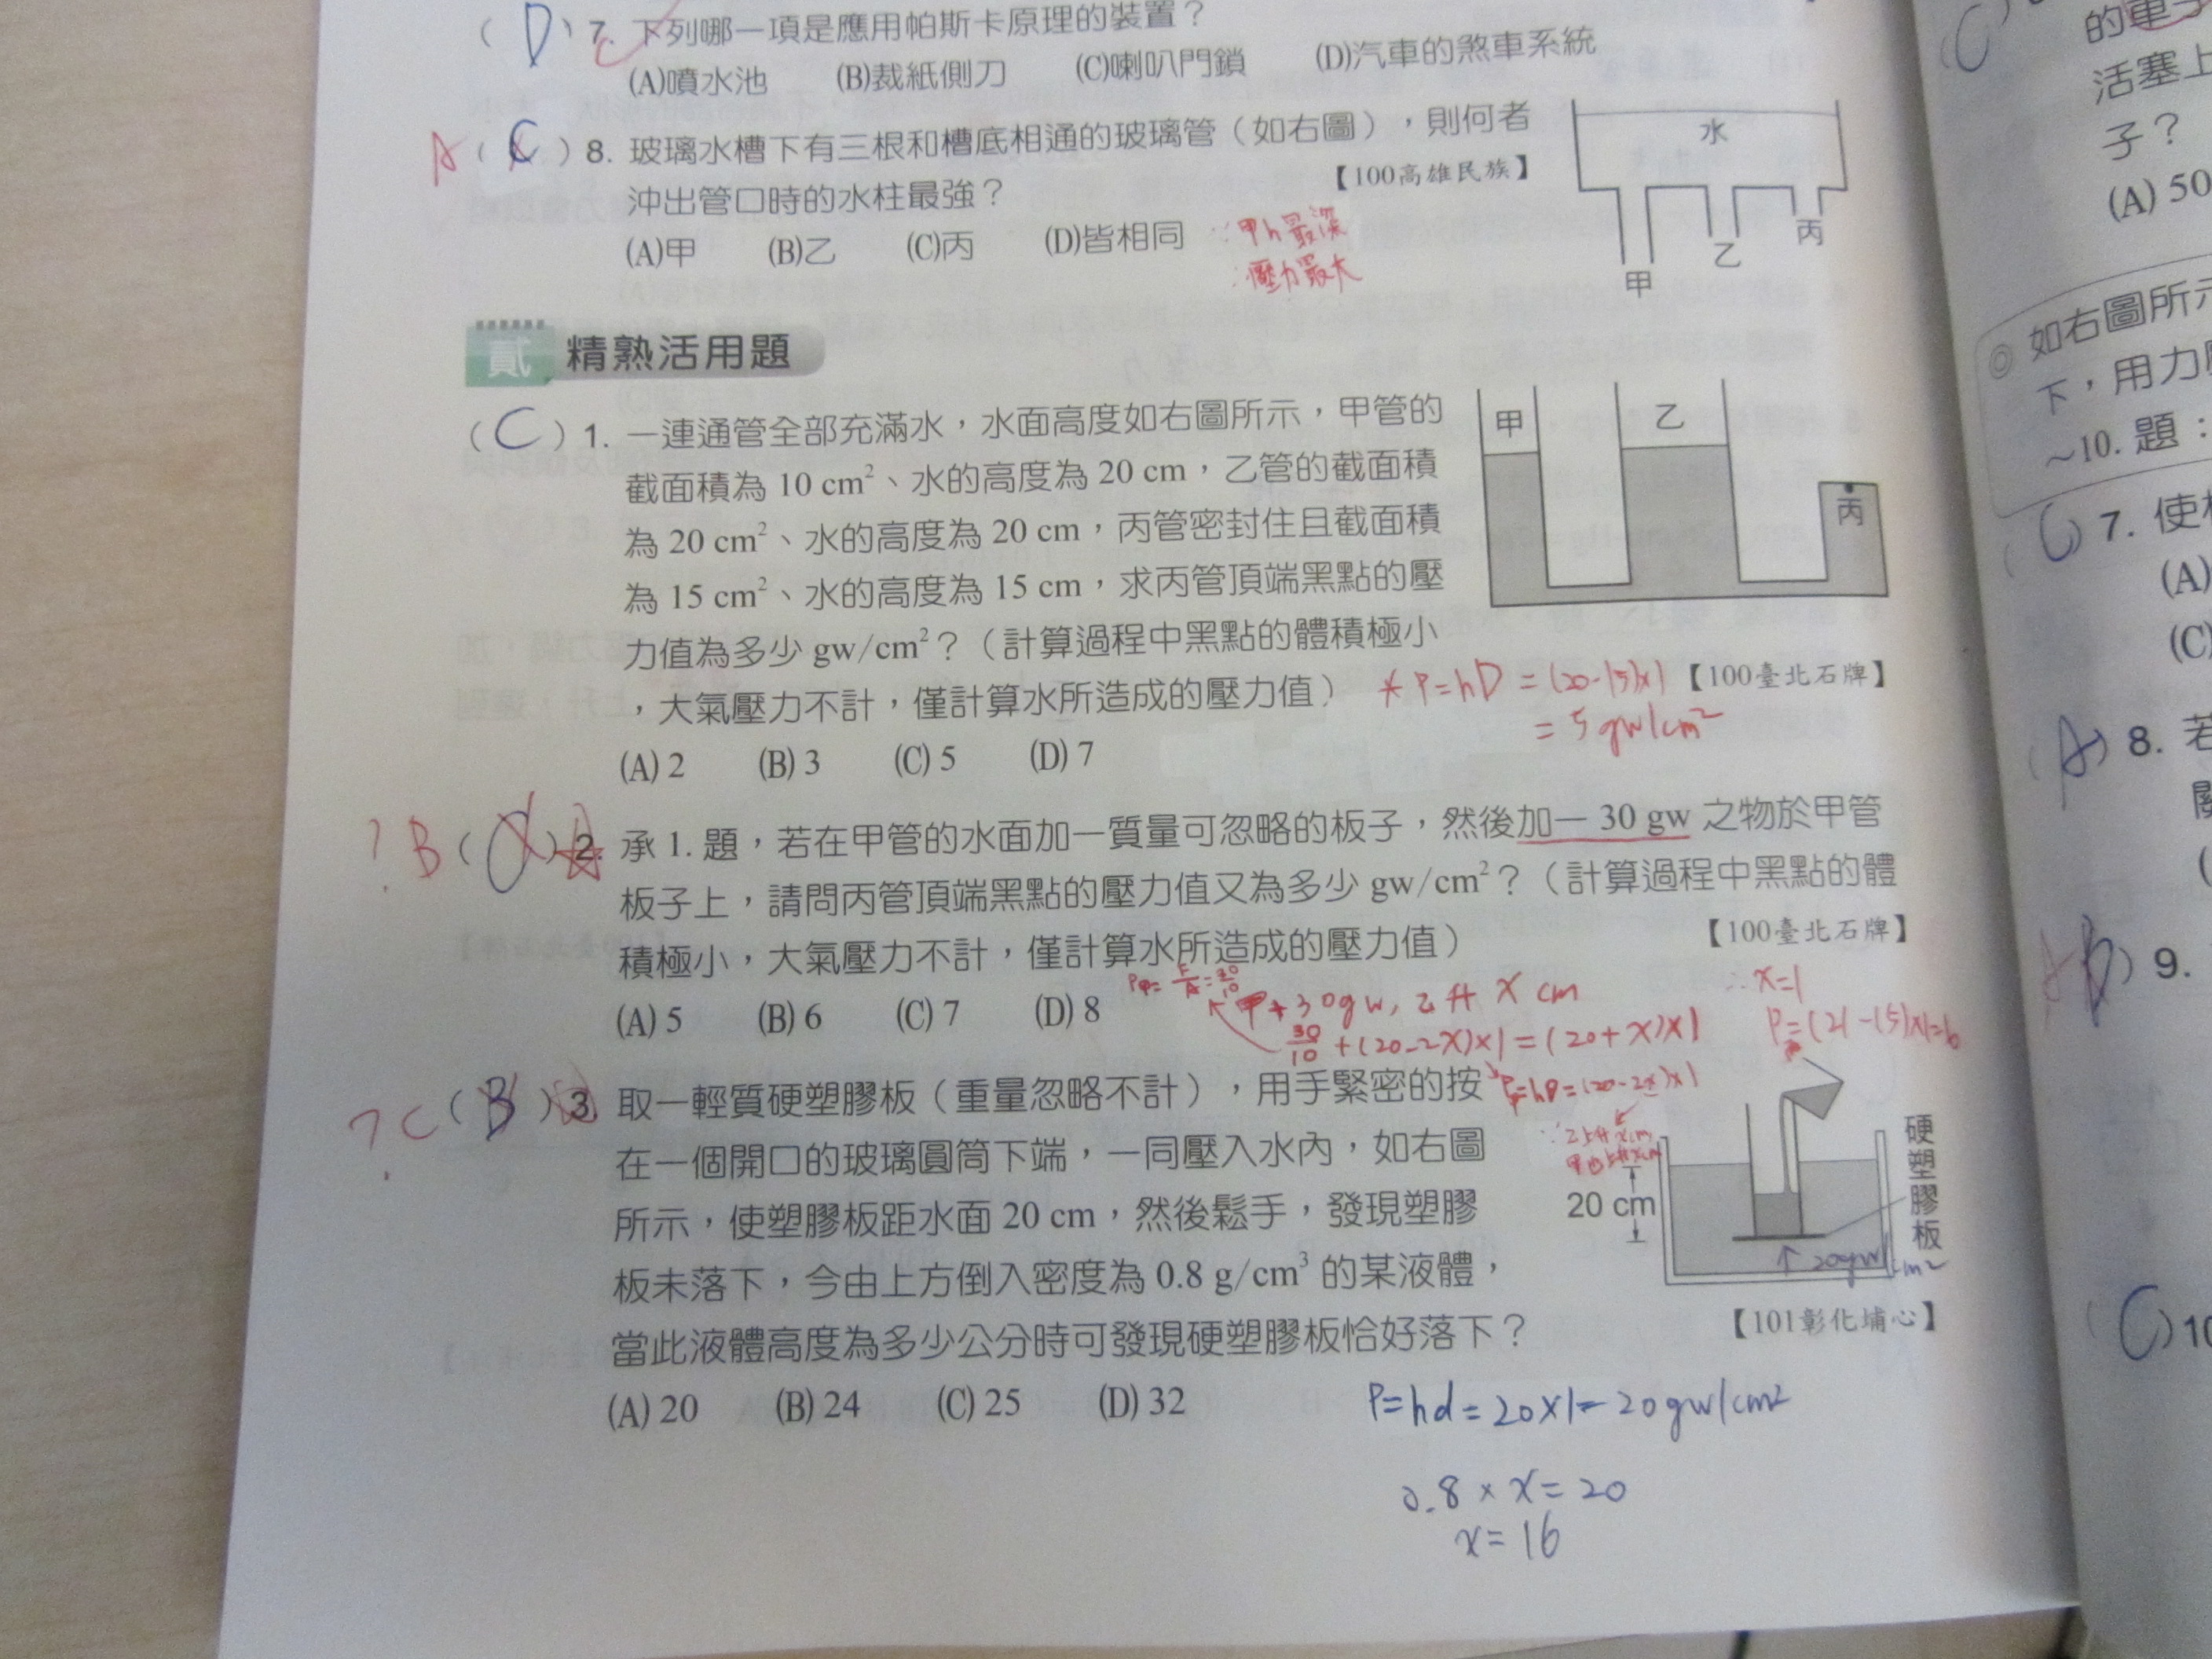 (D) 7. 下列哪一項是應用帕斯卡原理的裝置？
(A)噴水池 (B)裁紙側刀 (C)喇叭門鎖 (D)汽車的煞車系統
A (C) 8. 玻璃水槽下有三根和槽底相通的玻璃管（如右圖），則何者
沖出管口時的水柱最強？ 【100高雄民族】
(A)甲 (B)乙 (C)丙 (D)皆相同
∵甲h最深
∴壓力最大
水
甲
乙
丙
貳 精熟活用題
(C) 1. 一連通管全部充滿水，水面高度如右圖所示，甲管的
截面積為 10 cm²、水的高度為 20 cm，乙管的截面積
為 20 cm²、水的高度為 20 cm，丙管密封住且截面積
為 15 cm²、水的高度為 15 cm，求丙管頂端黑點的壓
力值為多少 gw/cm²？（計算過程中黑點的體積極小
，大氣壓力不計，僅計算水所造成的壓力值） 【100臺北石牌】
(A) 2 (B) 3 (C) 5 (D) 7
甲
乙
丙
* P=hD = (20-15)×1
= 5 gw/cm²
? B ( ) 2. 承 1. 題，若在甲管的水面加一質量可忽略的板子，然後加一 30 gw 之物於甲管
板子上，請問丙管頂端黑點的壓力值又為多少 gw/cm²？（計算過程中黑點的體
積極小，大氣壓力不計，僅計算水所造成的壓力值） 【100臺北石牌】
(A) 5 (B) 6 (C) 7 (D) 8
P甲=F/A=30/10
甲+30gw, 乙升 X cm
30/10 +(20-2X)×1=(20+X)×1
∴x=1
P=(21-15)×1=6
P=hD=(20-2x)×1
∵乙上升xcm
? C (B) 3. 取一輕質硬塑膠板（重量忽略不計），用手緊密的按
在一個開口的玻璃圓筒下端，一同壓入水內，如右圖
所示，使塑膠板距水面 20 cm，然後鬆手，發現塑膠
板未落下，今由上方倒入密度為 0.8 g/cm³ 的某液體，
當此液體高度為多少公分時可發現硬塑膠板恰好落下？ 【101彰化埔心】
(A) 20 (B) 24 (C) 25 (D) 32
20 cm
硬塑膠板
↑ 20gw/cm²
P=hd=20×1=20gw/cm²
0.8 × x=20
x=16
(C)
的
活塞上
子？
(A) 50
◎ 如右圖所示
下，用力
～10. 題：
(C) 7. 使
(A)
(C)
(A) 8. 若
關
(
) 9.
(C) 10